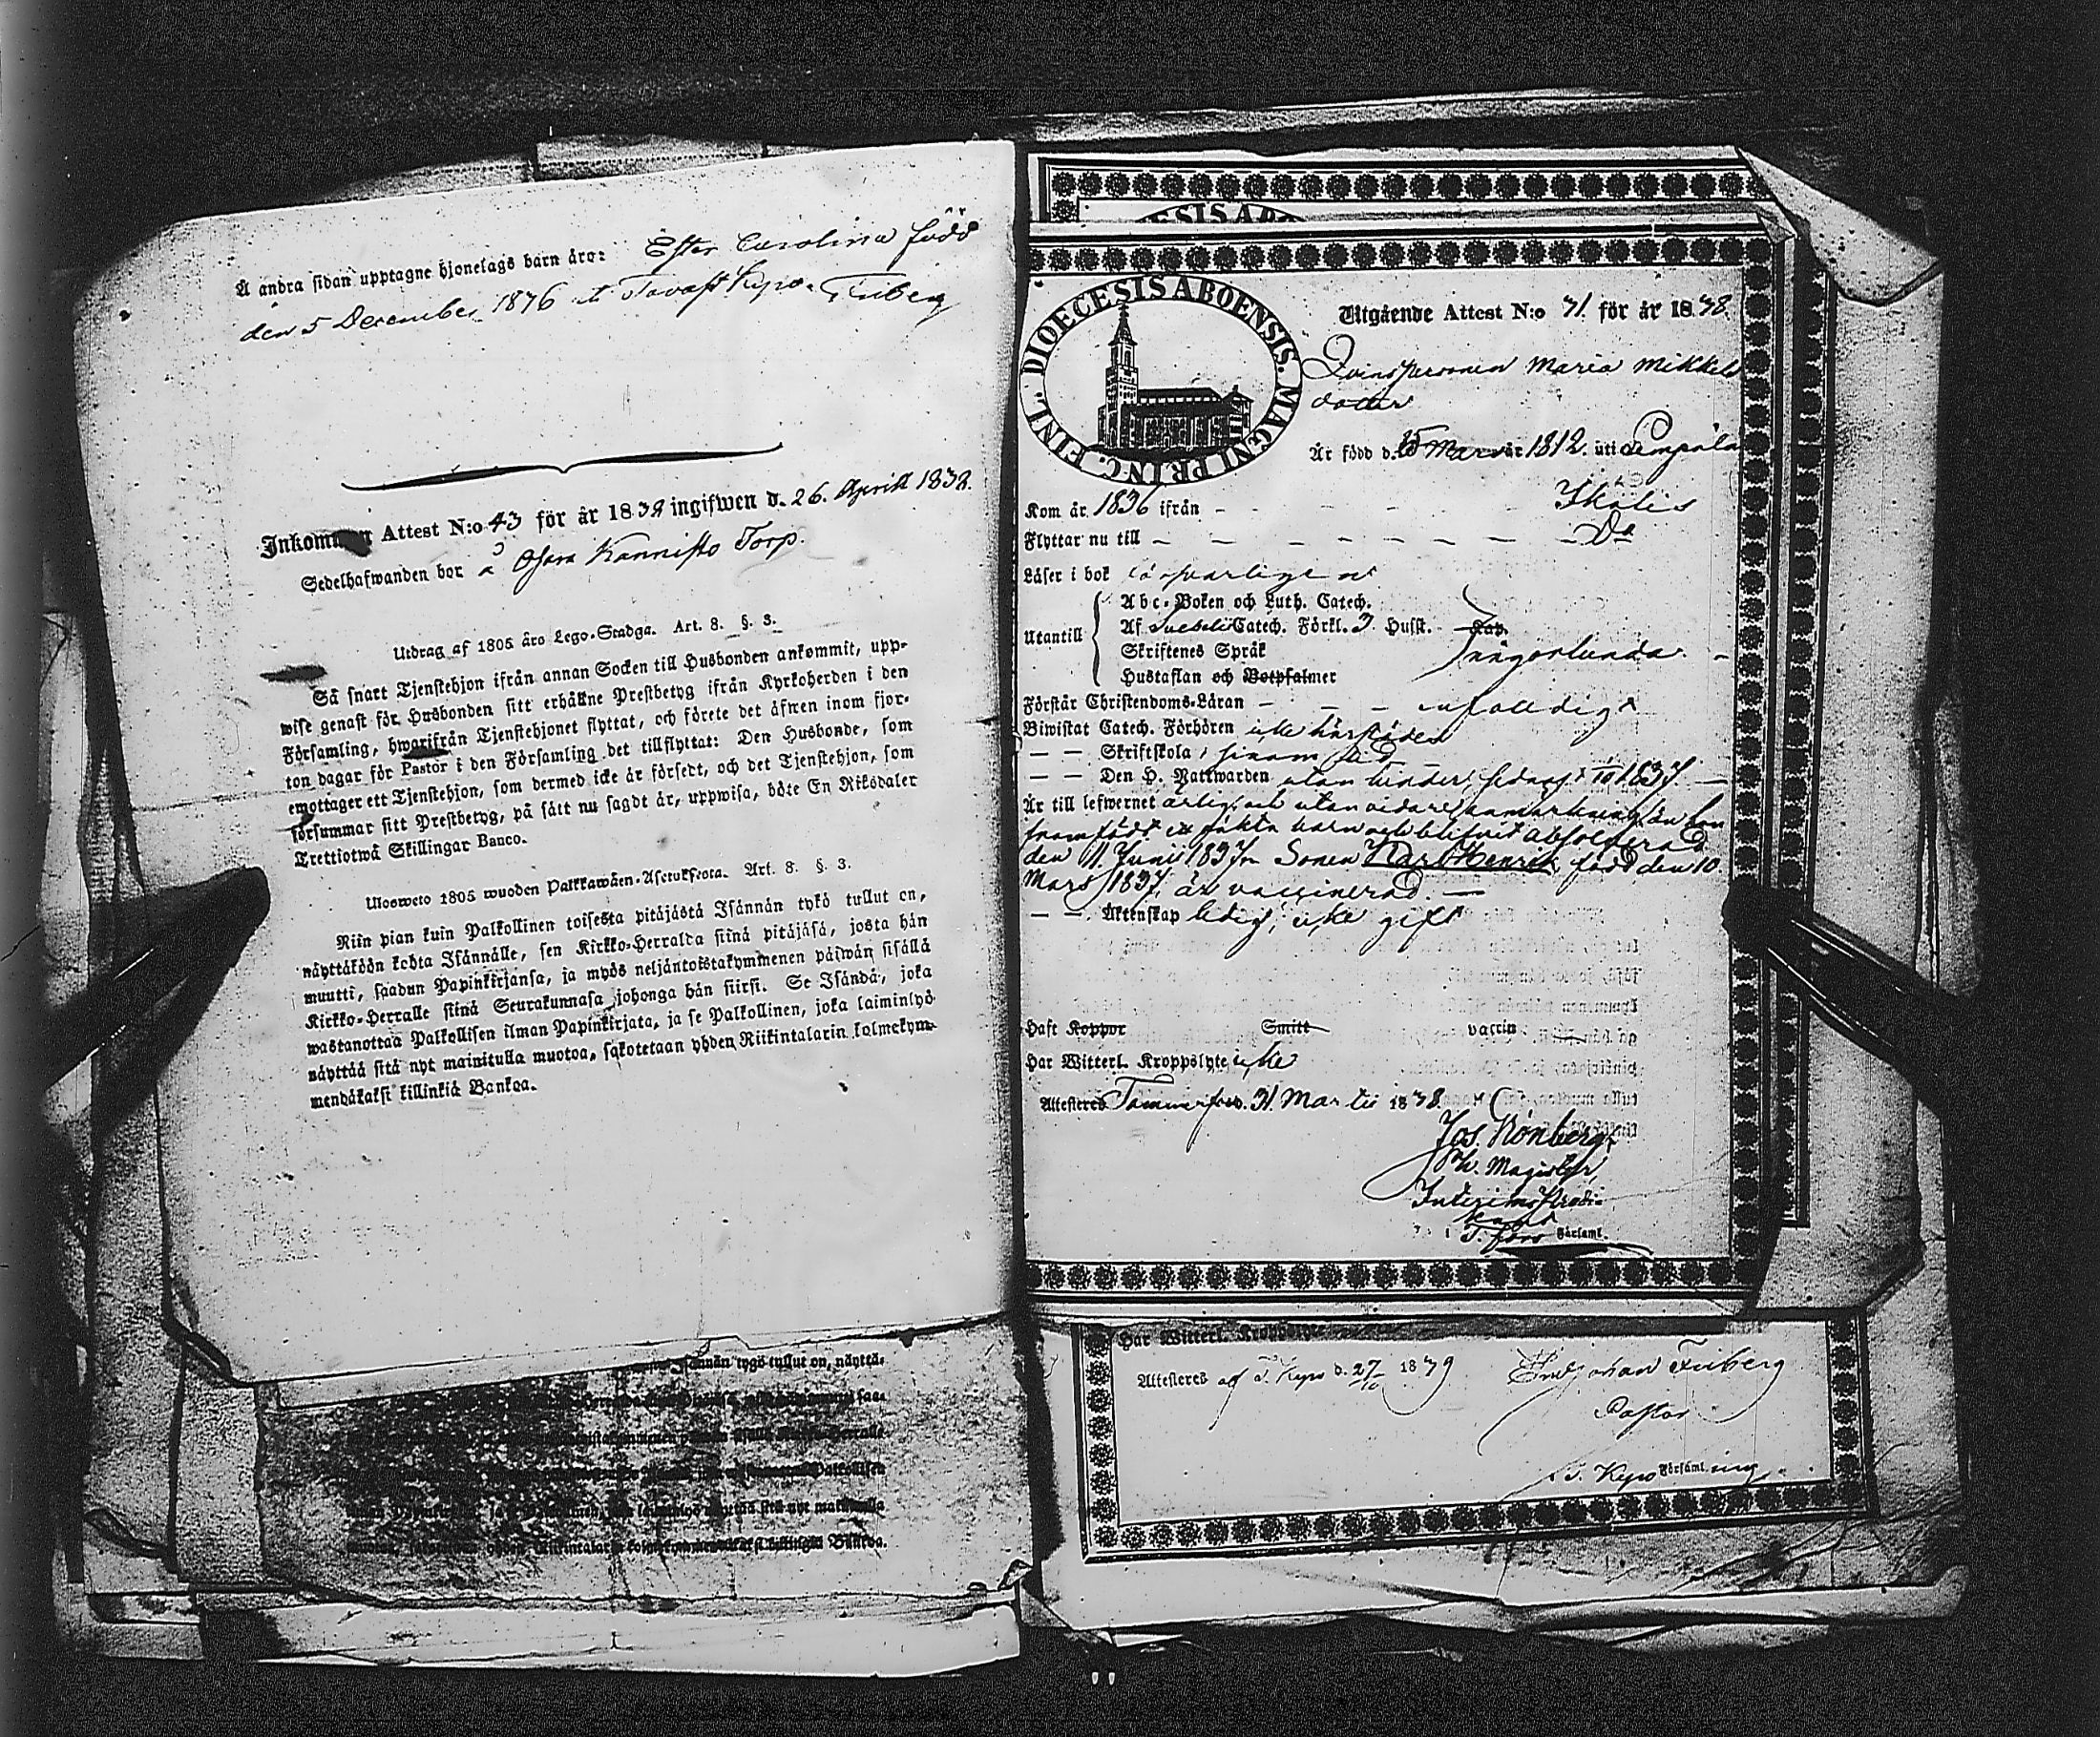 Å andra sidan upptagne hjonelags barn äro: Ester Carolina född
den 5 December 1876 Friberg
Attest N:o 43 för år 1838 ingifwen d. 26. Aprill 1838.
Sedelhafwanden bor å Osara Kannisto Torp.
Utdrag af 1805 års Lego-Stadga. Art. 8. §. 3.
Så snart Tjenstehjon ifrån annan Socken till Husbonden ankommit, upp-
wise genast för Husbonden sitt erhållne Prestbetyg ifrån Kyrkoherden i den
Församling, hwarifrån Tjenstehjonet flyttat, och förete det äfwen inom fjor-
ton dagar för Pastor i den Församling det tillflyttat: Den Husbonde, som
emottager ett Tjenstehjon, som dermed icke är försedt, och det Tjenstehjon, som
försummar sitt Prestbetyg, på sätt nu sagdt är, uppwisa, böte En Riksdaler
Trettiotwå Skillingar Banco.
Ulosweto 1805 wuoden Palkkawäen-Asetuksesta. Art. 8. §. 3.
Niin pian kuin Palkollinen toisesta pitäjästä Isännän tykö tullut on,
näyttäköön kohta Isännälle, sen Kirkko-Herralda siinä pitäjäsä, josta hän
muutti, saadun Papinkirjansa, ja myös neljäntoistakymmenen päiwän sisällä
Kirkko-Herralle siinä Seurakunnasa johonga hän siirsi. Se Isändä, joka
wastanottaa Palkollisen ilman Papinkirjata, ja se Palkollinen, joka laiminlyö
näyttää sitä nyt mainitulla muotoa, sakotetaan yhden Riikintalarin kolmekym-
mendäkaksi killinkiä Bankoa.
tygö tullut on, näyttä-
DIOECESIS ABOENSIS. MAGNI PRINC. FINL.
Utgående Attest N:o 71. för år 1838.
Qvinspersonen Maria Mikkels
dotter
Är född d. 15 Mars år 1812. uti Lempäla
Kom år 1836 ifrån - - - - - Ikalis
Flyttar nu till - - - - - - - Do
Läser i bok försvarligen
Abc-Boken och Luth. Catech.
Utantill Af Svebelii Catech. Förkl. 3 Husst.
Skriftenes Språk någorlunda. -
Hustaflan och Botpsalmer
Förstår Christendoms-Läran - - - enfaldigt
Biwistat Catech. Förhören icke härstädes
— — Skriftskola,
— — Den H. Nattwarden utan hinder, sednast 1837. —
Är till lefwernet ärlig, och utan vidare anmärkning än hon
framfödt oäkta barn och blifvit absolverad
den 11 Junii 1837. Sonen Karl Henrik, född den 10
Mars 1837, är vaccinerad. —
— — Äktenskap ledig, icke gift
Haft Koppor Smitt vaccin
Har Witterl. Kroppslyte icke
Attesteras Tammerfors d. 31 Martii 1838.
Jos. Grönberg,
Ph. Magister,
Interims Predi-
kant
i T.fors Församl.
Har Witterl. Kroppslyte
Attesteras af T. Kyro d. 27/10 1879
Johan Friberg
Pastor
i T. Kyro Församl.ing.